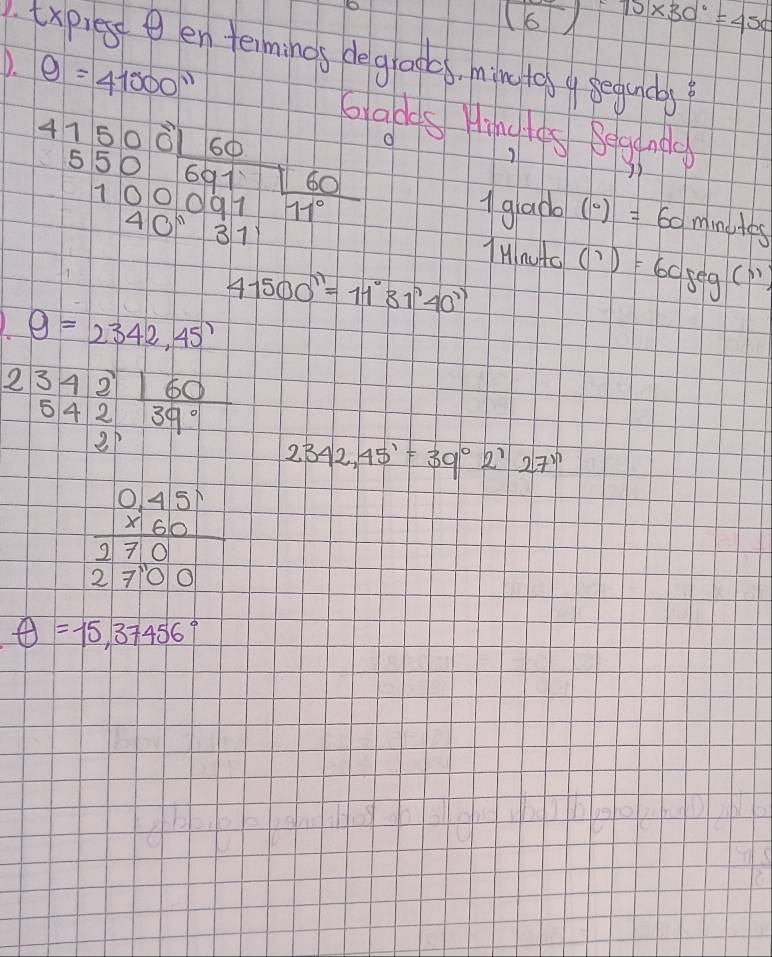 (6) 15×30°=450
1. Exprese θ en terminos de grados, minutos y segundos:
). θ = 41500"
Grados Minutos Segundos
° ' "
41500" 60
550 691' 60
100 091 11°
40" 31'
1 grado (°) = 60 minutos
1 Minuto (') = 60 seg (")
41500" = 11° 31' 40"
). θ = 2342,45'
2342' 60
542 39°
2'
2342,45' = 39° 2' 27"
0,45'
×60
270
27"00
θ = 15,37456°